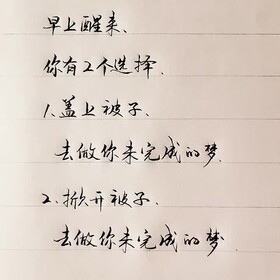 早上醒来、
你有2个选择.
1.盖上被子.
去做你未完成的梦.
2.掀开被子.
去做你未完成的梦.